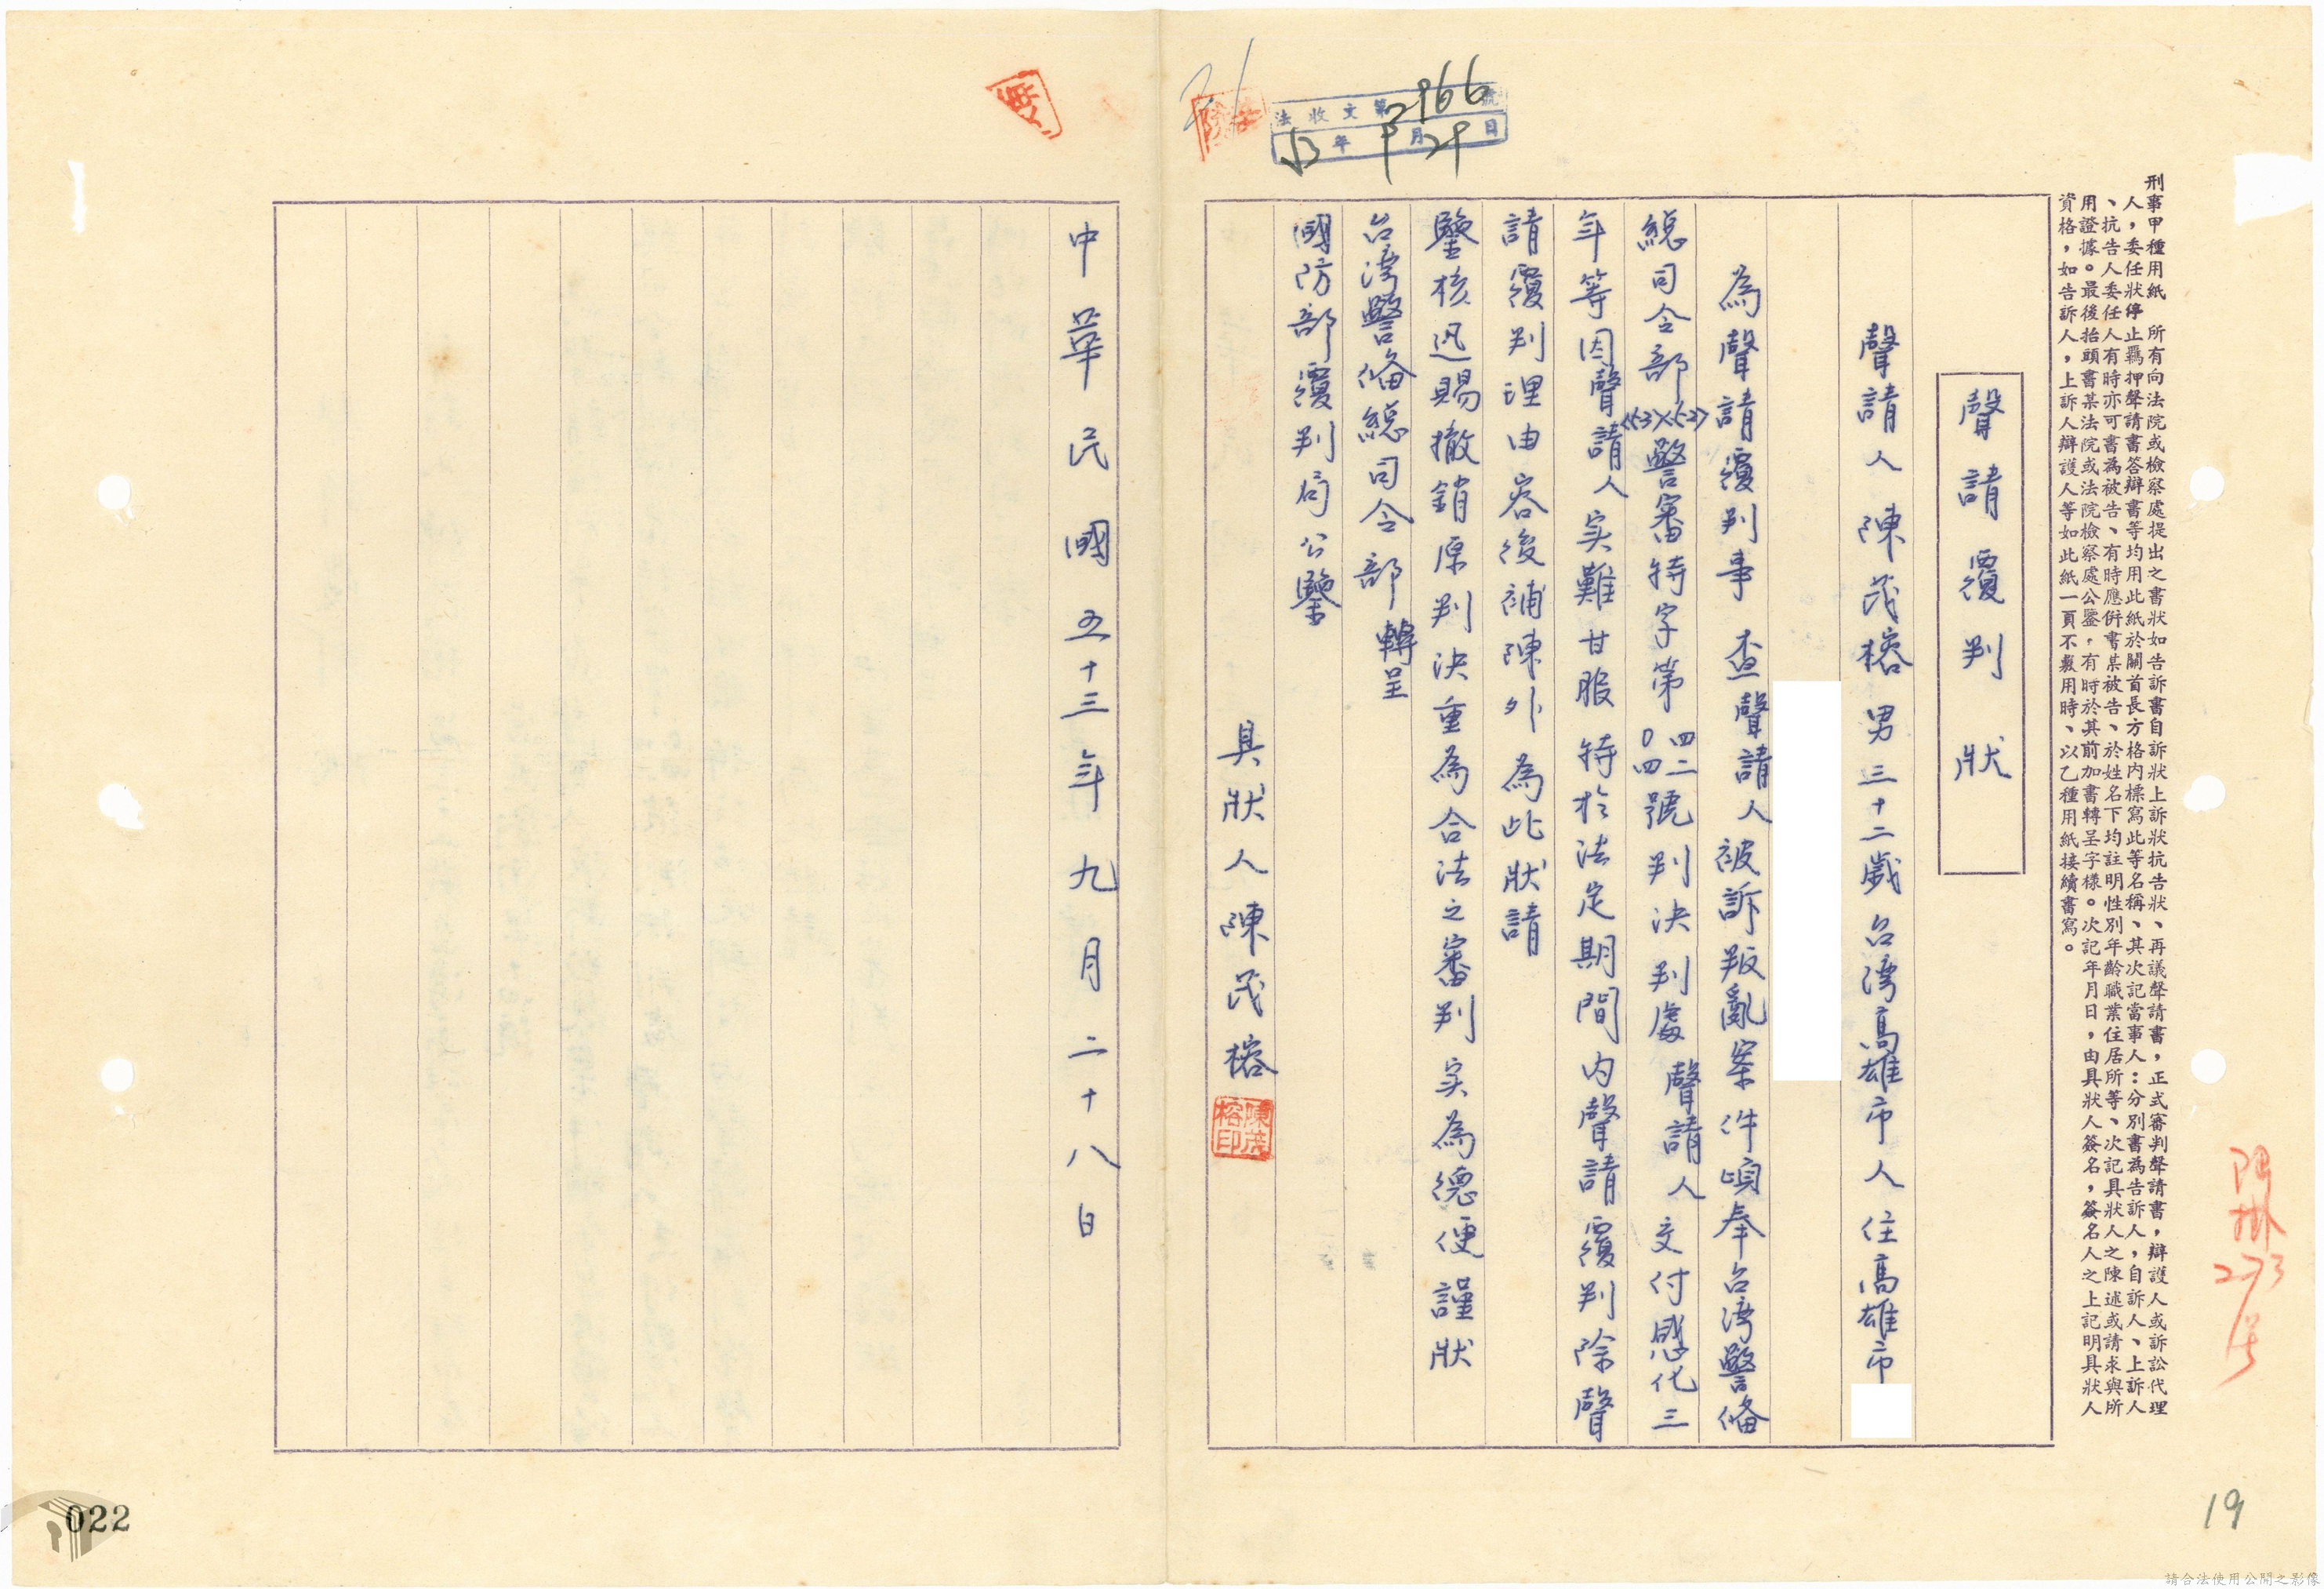 刑事甲種用紙 所有向法院或檢察處提出之書狀如告訴書自訴狀上訴狀抗告狀、再議聲請書，正式審判聲請書，辯護人或訴訟代理
人，委任狀停止羈押聲請書答辯書等均用此紙於關首長方格內標寫此等名稱、其次記當事人：分別書為告訴人，自訴人、上訴人
、抗告人委任人有時亦可書為被告、有時應併書某被告、於姓名下均註明性別年齡職業住居所等、次記具狀人之陳述或請求與所
用證據。最後抬頭書某法院或法院檢察處公鑒，有時於其前加書轉呈字樣。次記年月日，由具狀人簽名，簽名人之上記明具狀人
資格，如告訴人，上訴人辯護人等如此紙一頁不敷用時、以乙種用紙接續書寫。
聲請覆判狀
聲請人 陳茂榕 男 三十二歲 台灣高雄市人 住高雄市
為聲請覆判事 查聲請人被訴叛亂案件頃奉台灣警俻
總司令部(53)(53)警審特字第四二〇四號判決判處聲請人交付感化三
年等因聲請人实難甘服特於法定期間內聲請覆判除聲
請覆判理由容後補陳外為此狀請
鑒核迅賜撤銷原判決重為合法之審判实為德便謹狀
台灣警俻總司令部 轉呈
國防部覆判局公鑒
具狀人陳茂榕
陳茂榕印
法收文第2966號
53年9月29日
中華民國五十三年九月二十八日
273
19
022
請合法使用公開之影像